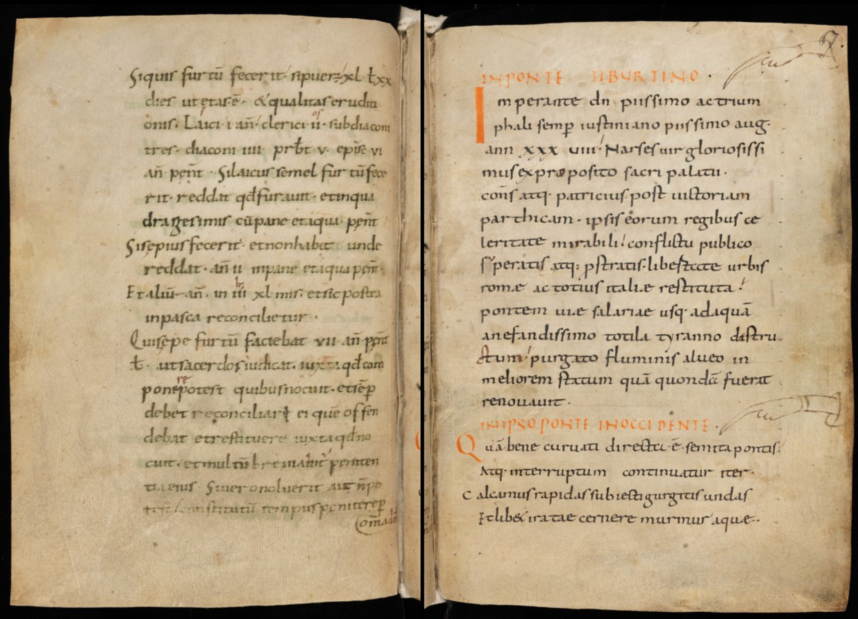 Siquis furtū fecerit · sipuer · xl · ł xxx
dies ut ętas ē · & qualitas eruditi
onis · Laici i añ · clerici ii · subdiacon
tres · diaconi iiii · prb̄t v · epis̄c vi
añ penīt · Silaicus semel furtū fece
rit · reddat qd̄ furauit · et inqua
dragesimis cū pane et aqua · penīt
Sisepius fecerit · et nonhabet unde
reddat · añ ii in pane et aqua penīt ·
Et aliū · añ · in iii xl mis · et sic postea
inpasca reconcilietur ·
Qui sepe furtū faciebat vii añ penīt
ł · ut sacerdos iudicat · iuxta qd̄ com
poni potest quibus nocuit · et sēp
debet reconciliari ei que offen
debat et restituere iuxta qd̄ no
cuit · et multū
eius · Si uero noluerit aut ñ po
constitutū tempus peniteat
INPONTE TIBURTINO ·
Imperante dn̄ piissimo ac trium
phali semp̄ iustiniano piissimo aug ·
ann xxx viiii · Narses uir gloriosissi
mus ex preposito sacri palatii ·
con̄s atq; patricius post uictoriam
parthicam · ipsis eorum regibus ce
leritate mirabili conflictu publico
superatis atq; pstratis · libertate urbis
rome ac totius italiae restituta ·
pontem uiae salariae usq; ad aquā
a nefandissimo totila tyranno distru
ctum · purgato fluminis alueo in
meliorem statum quā quondā fuerit
renouauit ·
IN IPSO PONTE IN OCCIDENTE ·
Quā bene curuati directa ē semita pontis ·
Atq; interruptum continuatur iter ·
Calcamus rapidas subiecti gurgitis undas
Et libet iratae cernere murmur aquae ·